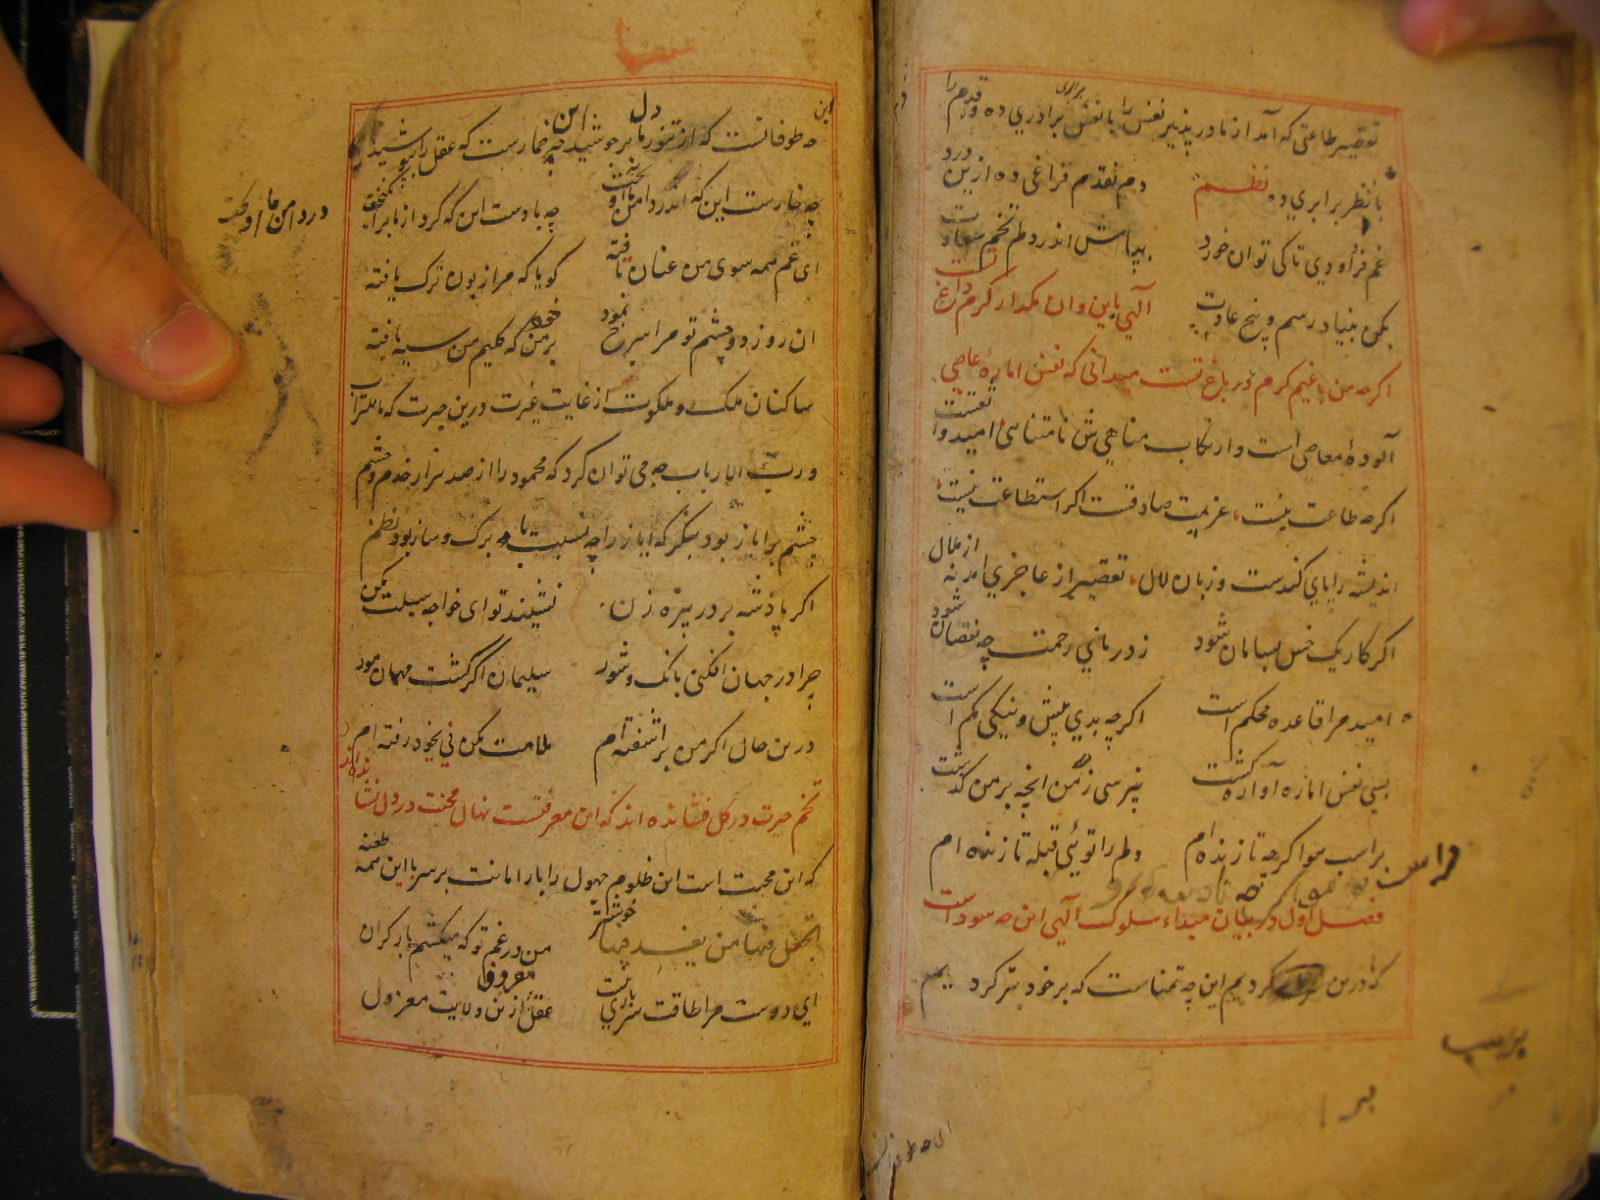 تقصیر طاعتی که آمد از ما در پذیر نفس را با نفس برادری ده و قدم را
با نظر برابری ده نظم
دم نقدم فراغی ده ازین درد
غم فرداودی تا کی توان خورد
بپاش اندر دلم تخم سعادت
بکن بنیاد رسم و بیخ عادت
الهی باین و ان مکدار کرم داری تست
اکرچه من باغیم کرم در باغ تست میدانی که نفس اماره عاصی
آلودهٔ معاصی است و ارتکاب مناهی ش نامتناهی امیدوار
اکرچه طاعت نیست عزیمت صادقت اکر استطاعت نیست
اندیشه را پای کندست و زبان لال تقصیر از عاجزی امد نه از ملال
اکر کار یک خس بسامان شود
ز دریای رحمت چه نقصان شود
امید مرا قاعده محکم است
اکرچه بدی بیش و نیکی کم است
بسی نفس اماره آواره کشت
نپرسی ز من انچه بر من کذشت
براسب هوا کرچه تازنده ام
دلم را توئی قبله تا زنده ام
فصل اول در بیان مبداء سلوک الهی این چه سوداست
که در سر کردیم این چه تمناست که بر خود بتر کردیم
این
چه طوفانست که از تنور دل ما بر جوشید این چه خمارست که عقل را بپوشید
چه خارست این که اندر دامن ما اویخت
چه بادست این که کرد از ما برانکیخت
در دامن ما اویخت
ای غم همه سوی من عنان تافته
کویا که مرا زبون ترک یافته
ان روز دو چشم تو مرا سرخ نمود
بر من که کلیم من سیه بافته
ساکنان ملک و ملکوت از غایت غیرت درین حیرت که ماللتراب
و رب الارباب چه می توان کرد که محمود را از صد هزار خدم و حشم
چشم بر ایاز بود بنکر که ایاز را چه نسبت با و برک و ساز بود نظم
اکر پادشه بر در پیره زن
نشیند تو ای خواجه سبلت مکن
چرا در جهان افکنی بانک و شور
سلیمان اکر کشت مهمان مور
درین حال اکر من بر اشفته ام
ملامت مکن نی بخود رفته ام
تخم حیرت در کل فشانده اند که این معرفتست نهال محنت در دل نشانده اند
که این محبت است این ظلوم جهول را بار امانت بر سر با این همه طعنه
اتجعل فیها من یفسد فیها خوشتر
من در غم تو که میکشم بار کران
ای دوست مرا طاقت سرباری نیست
عقل از من و ولایت معزول
معروف